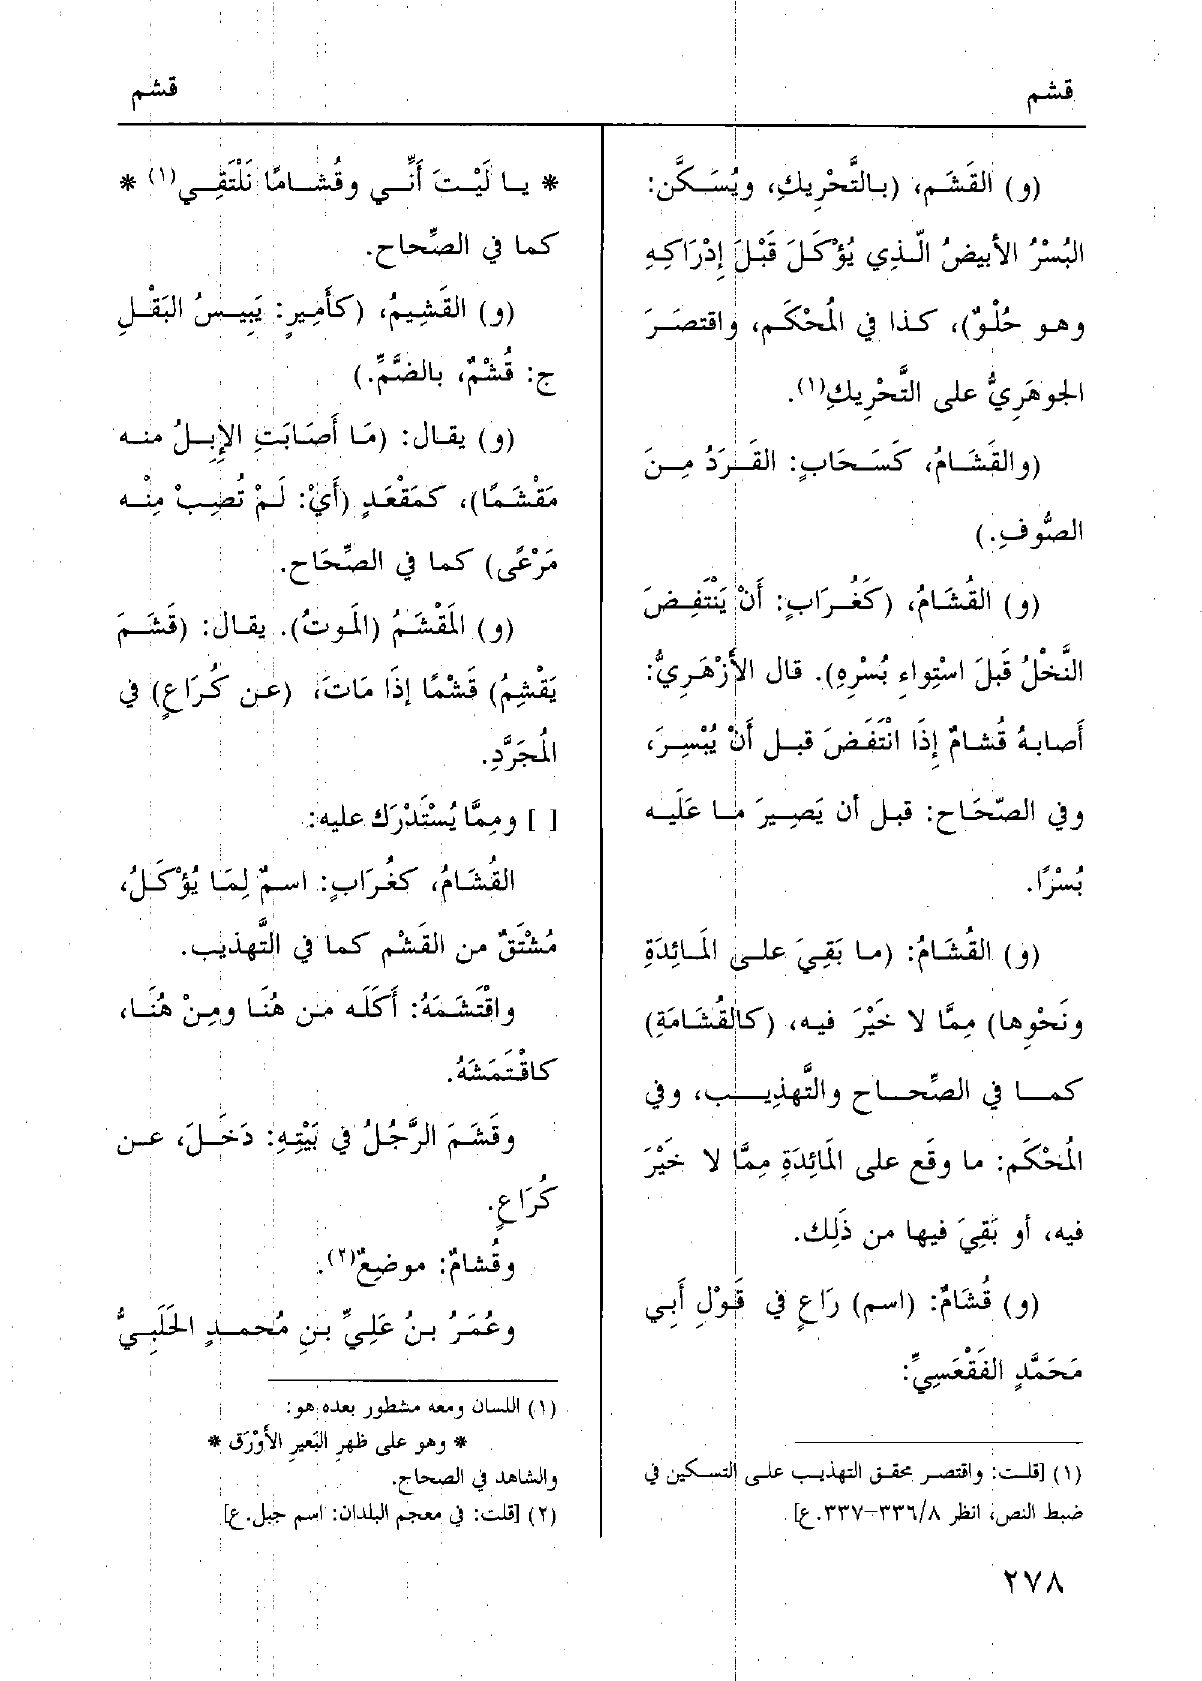 قشم
قشم
(و) القَشَم، (بالتَّحْرِيكِ، ويُسَكَّن:
البُسْرُ الأبيضُ الّذي يُؤْكَلَ قَبْلَ إِدْرَاكِهِ
وهو حُلْوٌ)، كذا في المُحْكَم، واقتصَرَ
الجوهَرِيُّ على التَّحْرِيكِ(١).
(والقَشَامُ، كَسَحَابٍ: القَرَدُ مِنَ
الصُّوفِ.)
(و) القُشَامُ، (كَغُرَابٍ: أَنْ يَنْتَفِضَ
النَّخْلُ قَبلَ اسْتِواءِ بُسْرِهِ). قال الأَزْهَرِيُّ:
أَصابهُ قُشامٌ إِذَا انْتَفَضَ قبل أَنْ يُبْسِرَ،
وفي الصّحَاح: قبل أن يَصِيرَ ما عَلَيه
بُسْرًا.
(و) القُشَامُ: (ما بَقِيَ على المَائِدَةِ
ونَحْوِها) مِمَّا لا خَيْرَ فيه، (كالقُشَامَةِ)
كما في الصِّحاح والتَّهذِيب، وفي
المُحْكَم: ما وقَع على المَائِدَةِ مِمَّا لا خَيْرَ
فيه، أو بَقِيَ فيها من ذَلِك.
(و) قُشَامٌ: (اسم) رَاعٍ في قَوْلِ أَبِي
مَحَمَّدٍ الفَقْعَسِيِّ:
(١) [قلت: واقتصر محقق التهذيب على التسكين في
ضبط النص، انظر ٣٣٦/٨-٣٣٧.ع]
* يا لَيْتَ أَنِّي وقُشامًا نَلْتَقِي(١) *
كما في الصِّحاح.
(و) القَشِيمُ، (كأَمِيرٍ: يَبِيسُ البَقْلِ
ج: قُشْمٌ، بالضَّمِّ.)
(و) يقال: (مَا أَصَابَتِ الإِبِلُ منه
مَقْشَمًا)، كمَقْعَدٍ (أَيْ: لَمْ تُصِبْ مِنْه
مَرْعًى) كما في الصِّحَاح.
(و) المَقْشَمُ (المَوتُ). يقال: (قَشَمَ
يَقْشِمُ) قَشْمًا إِذَا مَاتَ، (عن كُرَاعٍ) في
المُجَرَّدِ.
[ ] ومِمَّا يُسْتَدْرَك عليه:
القُشَامُ، كغُرَابٍ: اسمٌ لِمَا يُؤْكَلُ،
مُشْتَقٌ من القَشْم كما في التَّهذيب.
واقْتَشَمَهُ: أَكَلَه من هُنَا ومِنْ هُنَا،
كاقْتَمَشَهُ.
وقَشَمَ الرَّجُلُ في بَيْتِهِ: دَخَلَ، عن
كُرَاعٍ.
وقُشامٌ: موضِعٌ(٢).
وعُمَرُ بنُ عَلِيِّ بنِ مُحمدٍ الحَلَبِيُّ
(١) اللسان ومعه مشطور بعده هو:
* وهو على ظهرِ البَعيرِ الأَوْرَق *
والشاهد في الصحاح.
(٢) [قلت: في معجم البلدان: اسم جبل.ع]
٢٧٨